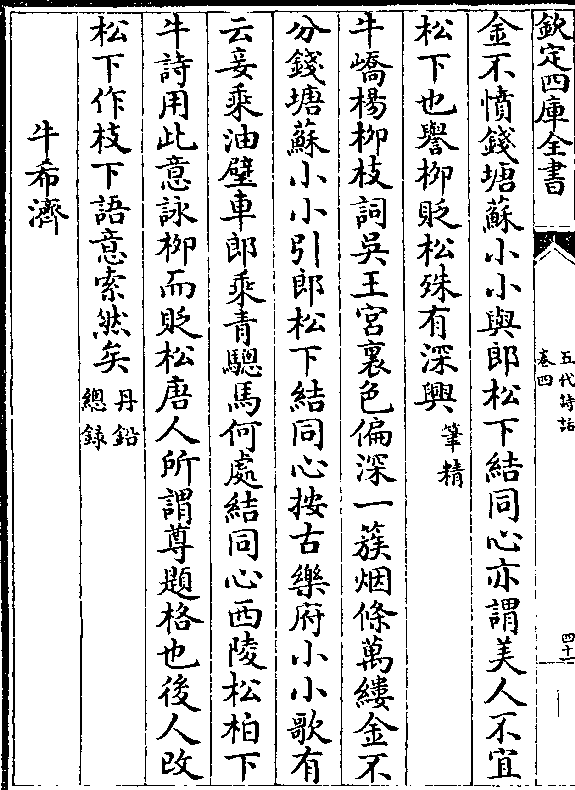 欽定四庫全書
五代詩話
卷四
四十一
金不憤錢塘蘇小小與郎松下結同心亦謂美人不宜
松下也譽柳貶松殊有深興筆精
牛嶠楊柳枝詞吳王宮裏色偏深一簇烟條萬縷金不
分錢塘蘇小小引郎松下結同心按古樂府小小歌有
云妾乘油壁車郎乘青驄馬何處結同心西陵松柏下
牛詩用此意詠柳而貶松唐人所謂尊題格也後人改
松下作枝下語意索然矣丹鉛總錄
牛希濟